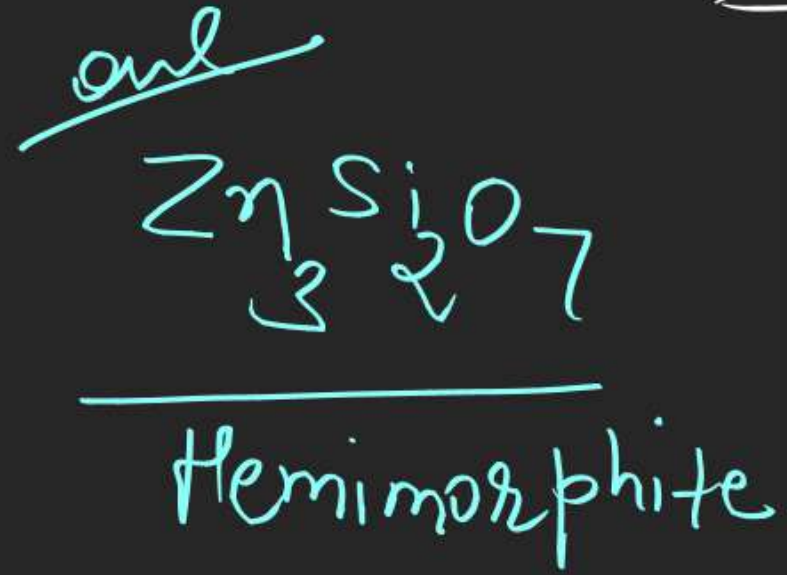 Zn3Si2O7
Hemimorphite